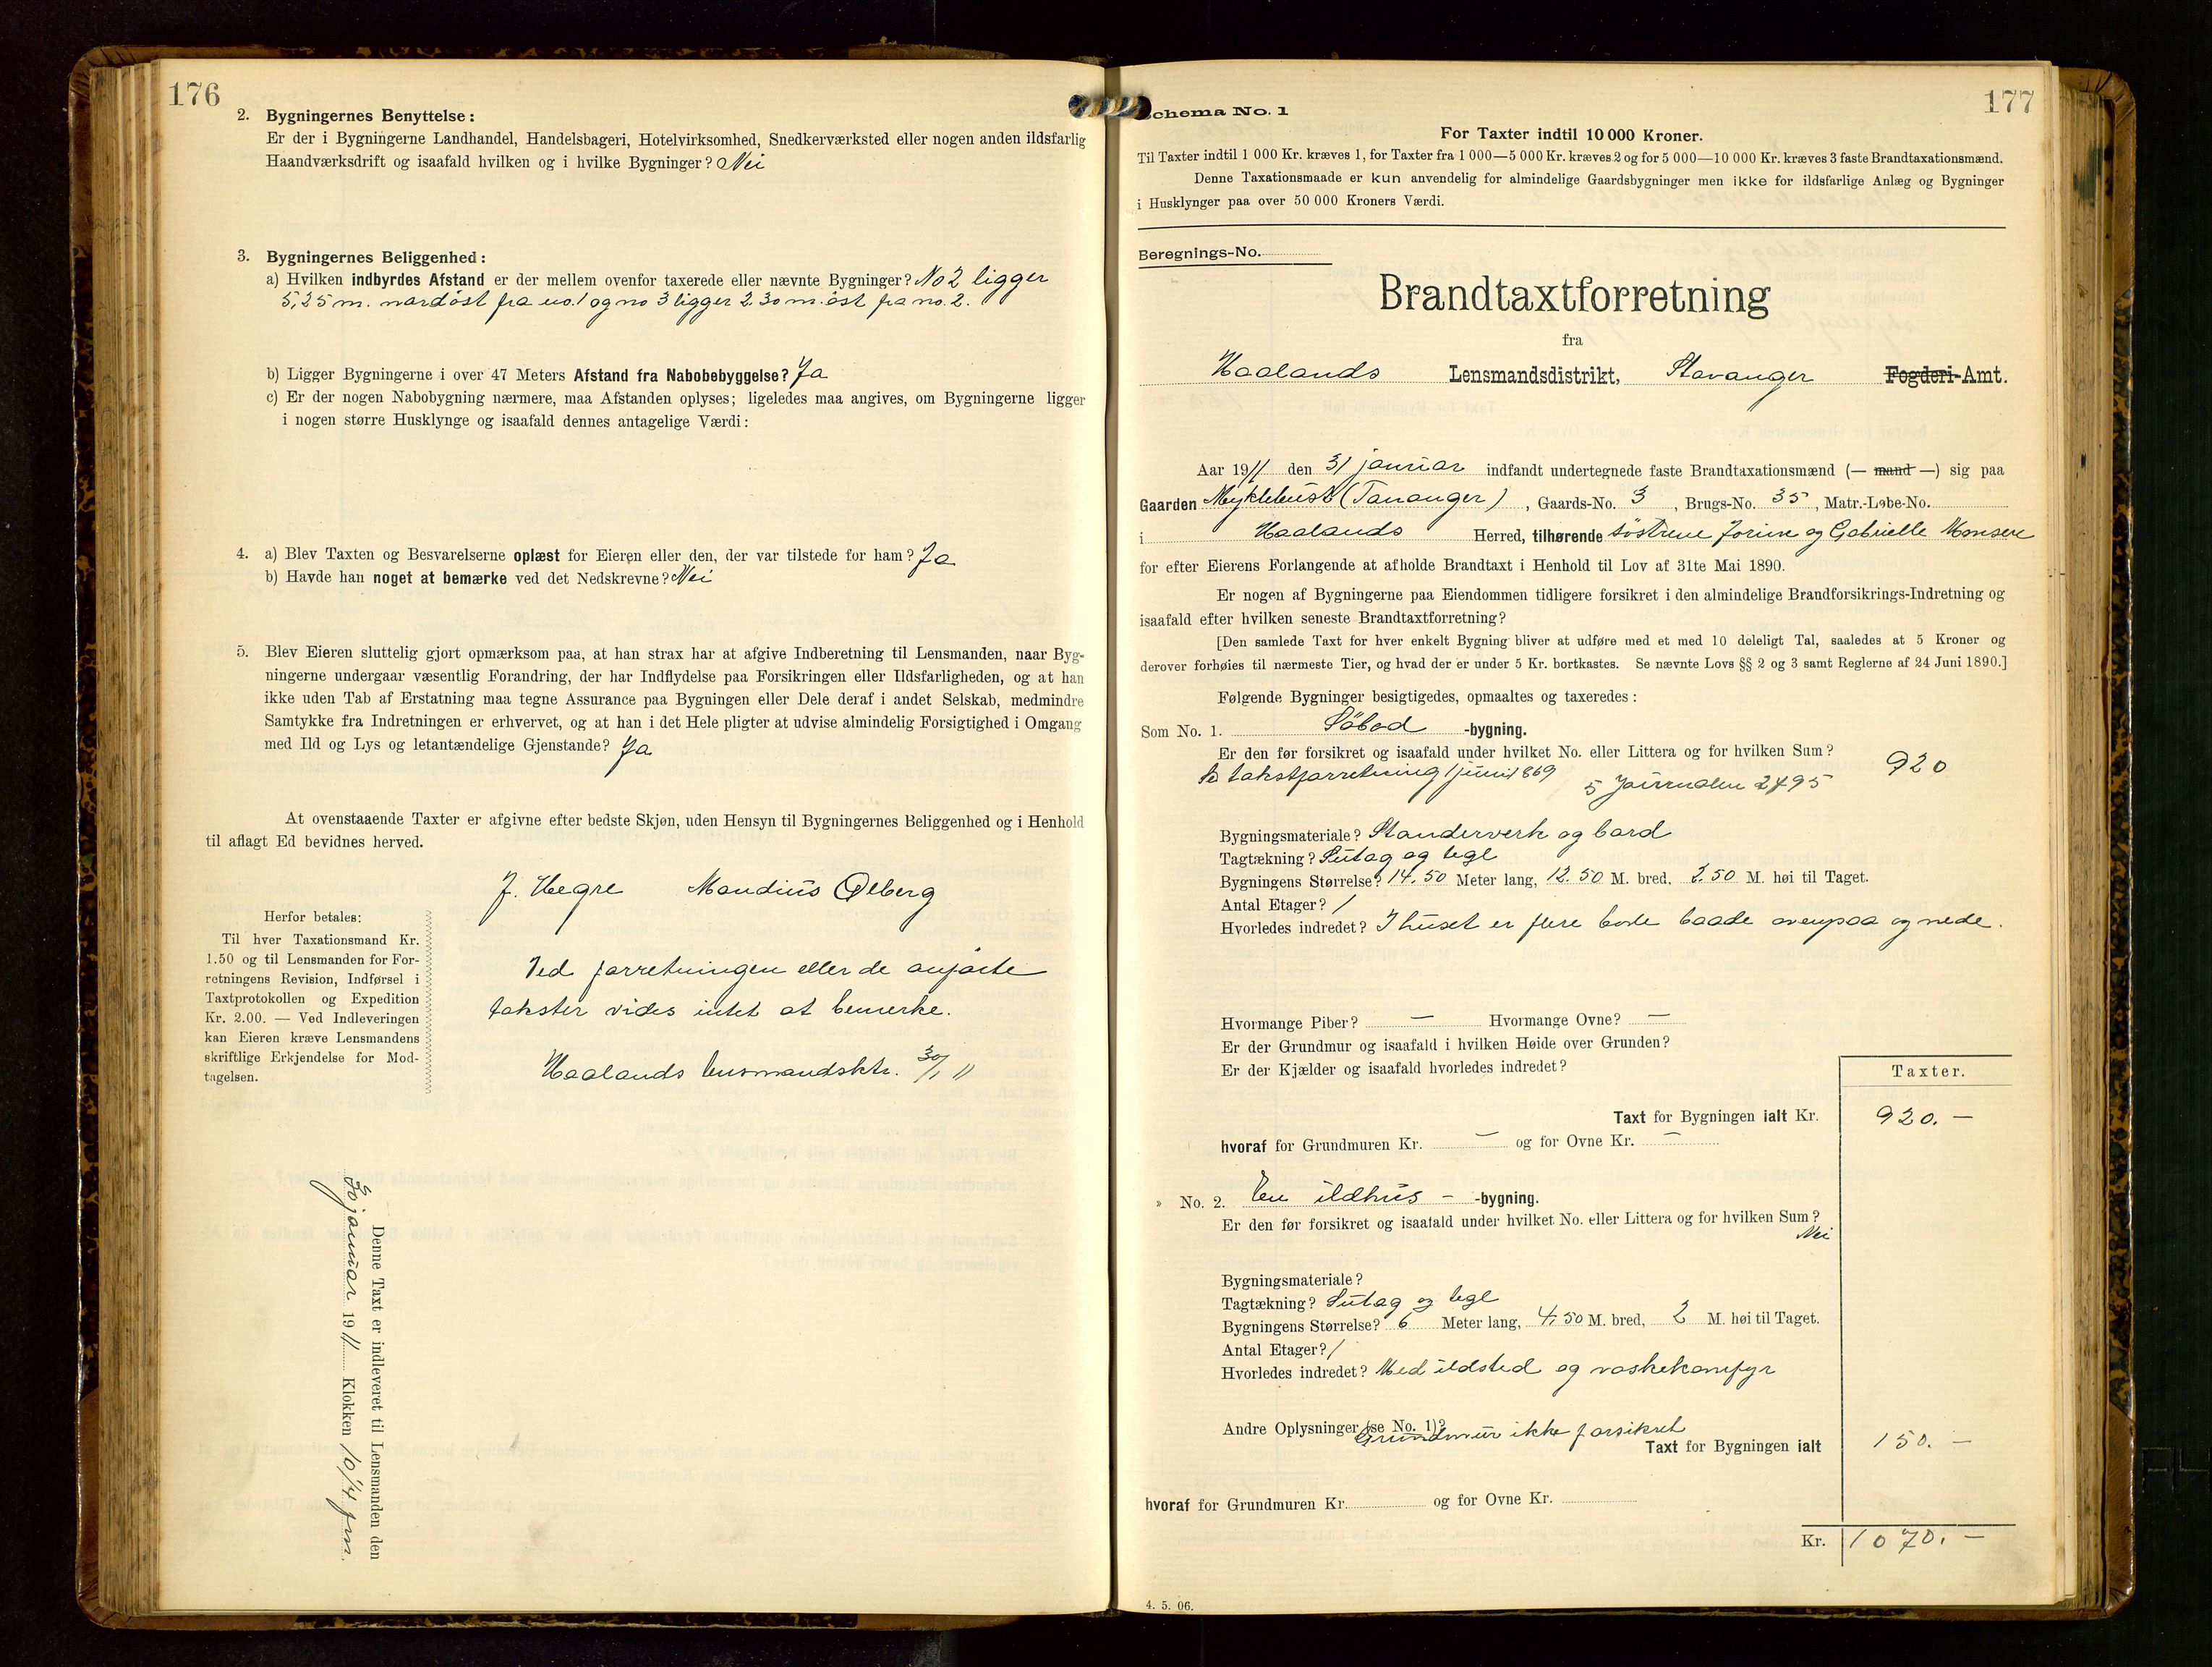 176
2. Bygningernes Benyttelse:
Er der i Bygningerne Landhandel, Handelsbageri, Hotelvirksomhed, Snedkerværksted eller nogen anden ildsfarlig
Haandværksdrift og isaafald hvilken og i hvilke Bygninger? Nei
3. Bygningernes Beliggenhed:
a) Hvilken indbyrdes Afstand er der mellem ovenfor taxerede eller nævnte Bygninger? No 2 ligger
5,25 m. nordöst fra no. 1 og no 3 ligger 2.30 m. öst fra no. 2.
b) Ligger Bygningerne i over 47 Meters Afstand fra Nabobebyggelse? Ja
c) Er der nogen Nabobygning nærmere, maa Afstanden oplyses; ligeledes maa angives, om Bygningerne ligger
i nogen større Husklynge og isaafald dennes antagelige Værdi:
4. a) Blev Taxten og Besvarelserne oplæst for Eieren eller den, der var tilstede for ham? Ja
b) Havde han noget at bemærke ved det Nedskrevne? Nei
5. Blev Eieren sluttelig gjort opmærksom paa, at han strax har at afgive Indberetning til Lensmanden, naar Byg-
ningerne undergaar væsentlig Forandring, der har Indflydelse paa Forsikringen eller Ildsfarligheden, og at han
ikke uden Tab af Erstatning maa tegne Assurance paa Bygningen eller Dele deraf i andet Selskab, medmindre
Samtykke fra Indretningen er erhvervet, og at han i det Hele pligter at udvise almindelig Forsigtighed i Omgang
med Ild og Lys og letantændelige Gjenstande? Ja
At ovenstaaende Taxter er afgivne efter bedste Skjøn, uden Hensyn til Bygningernes Beliggenhed og i Henhold
til aflagt Ed bevidnes herved.
J. Hegre Mandius Ølberg
Herfor betales:
Til hver Taxationsmand Kr.
1.50 og til Lensmanden for For-
retningens Revision, Indførsel i
Taxtprotokollen og Expedition
Kr. 2.00. — Ved Indleveringen
kan Eieren kræve Lensmandens
skriftlige Erkjendelse for Mod-
tagelsen.
Ved forretningen eller de anførte
takster vides intet at bemerke.
Haalands lensmandsktr. 30/1 11
Denne Taxt er indleveret til Lensmanden den
30 januar 1911 Klokken 10/4 fm.
177
Schema No. 1
For Taxter indtil 10 000 Kroner.
Til Taxter indtil 1 000 Kr. kræves 1, for Taxter fra 1 000—5 000 Kr. kræves 2 og for 5 000—10 000 Kr. kræves 3 faste Brandtaxationsmænd.
Denne Taxationsmaade er kun anvendelig for almindelige Gaardsbygninger men ikke for ildsfarlige Anlæg og Bygninger
i Husklynger paa over 50 000 Kroners Værdi.
Beregnings-No.
Brandtaxtforretning
fra
Haalands Lensmandsdistrikt, Stavanger Fogderi-Amt.
Aar 1911 den 31 januar indfandt undertegnede faste Brandtaxationsmænd (— mand —) sig paa
Gaarden Myklebust (Tananger), Gaards-No. 3, Brugs-No. 35, Matr.-Løbe-No.
i Haalands Herred, tilhørende söstrene Jorine og Gabrielle Monsen
for efter Eierens Forlangende at afholde Brandtaxt i Henhold til Lov af 31te Mai 1890.
Er nogen af Bygningerne paa Eiendommen tidligere forsikret i den almindelige Brandforsikrings-Indretning og
isaafald efter hvilken seneste Brandtaxtforretning?
[Den samlede Taxt for hver enkelt Bygning bliver at udføre med et med 10 deleligt Tal, saaledes at 5 Kroner og
derover forhøies til nærmeste Tier, og hvad der er under 5 Kr. bortkastes. Se nævnte Lovs §§ 2 og 3 samt Reglerne af 24 Juni 1890.]
Følgende Bygninger besigtigedes, opmaaltes og taxeredes:
Som No. 1. Söbod -bygning.
Er den før forsikret og isaafald under hvilket No. eller Littera og for hvilken Sum? 920
takstforretning 1 juni 1869 5 Journalen 2495
Bygningsmateriale? Standerverk og bord
Tagtækning? Sutag og tegl
Bygningens Størrelse? 14.50 Meter lang, 12.50 M. bred, 2.50 M. høi til Taget.
Antal Etager? 1
Hvorledes indredet? I huset er flere bode baade ovenpaa og nede.
Hvormange Piber? — Hvormange Ovne? —
Er der Grundmur og isaafald i hvilken Høide over Grunden?
Er der Kjælder og isaafald hvorledes indredet?
Taxter.
Taxt for Bygningen ialt Kr. 920. —
hvoraf for Grundmuren Kr. — og for Ovne Kr. —
» No. 2. En ildhus - -bygning.
Er den før forsikret og isaafald under hvilket No. eller Littera og for hvilken Sum?
Nei
Bygningsmateriale?
Tagtækning? Sutag og tegl
Bygningens Størrelse? 6 Meter lang, 4.50 M. bred, 2 M. høi til Taget.
Antal Etager? 1
Hvorledes indredet? Med ildsted og vaskekomfyr
Andre Oplysninger (se No. 1)?
Grundmur ikke forsikret
Taxt for Bygningen ialt 150. —
hvoraf for Grundmuren Kr. og for Ovne Kr.
Kr. 1070. —
4. 5. 06.